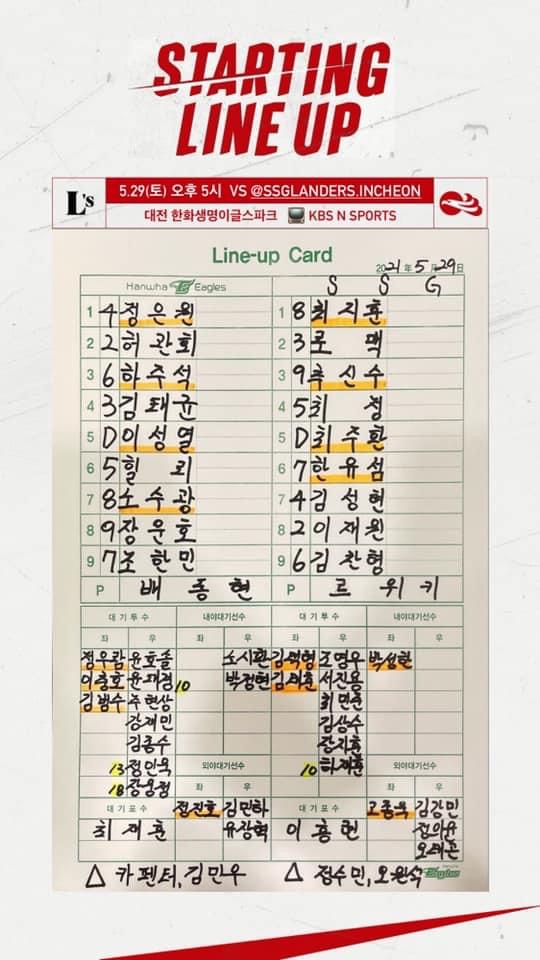 STARTING
LINE UP
L's
5.29(토) 오후 5시 VS @SSGLANDERS.INCHEON
대전 한화생명이글스파크 KBS N SPORTS
Line-up Card
2021년 5월 29일
Hanwha Eagles
S S G
1 4 정은원
1 8 최지훈
2 2 허관회
2 3 로맥
3 6 하주석
3 9 추신수
4 3 김태균
4 5 최정
5 D 이성열
5 D 최주환
6 5 힐리
6 7 한유섬
7 8 노수광
7 4 김성현
8 9 장운호
8 2 이재원
9 7 조한민
9 6 김찬형
P 배동현
P 르위키
대기투수 내야대기선수 대기투수 내야대기선수
좌 우 좌 우 좌 우 좌 우
정우람 윤호솔 노시환 김택형 조영우 박성한
이충호 윤대경 10 박정현 김태훈 서진용
김범수 주현상 최민준
강재민 김상수
김종수 장지훈
13 정인욱 외야대기선수 10 하재훈 외야대기선수
18 장웅정 좌 우 좌 우
대기포수 정진호 김민하 대기포수 고종욱 김강민
최재훈 유장혁 이흥련 정의윤
오태곤
△ 카펜터, 김민우 △ 정수민, 오원석
Eagles